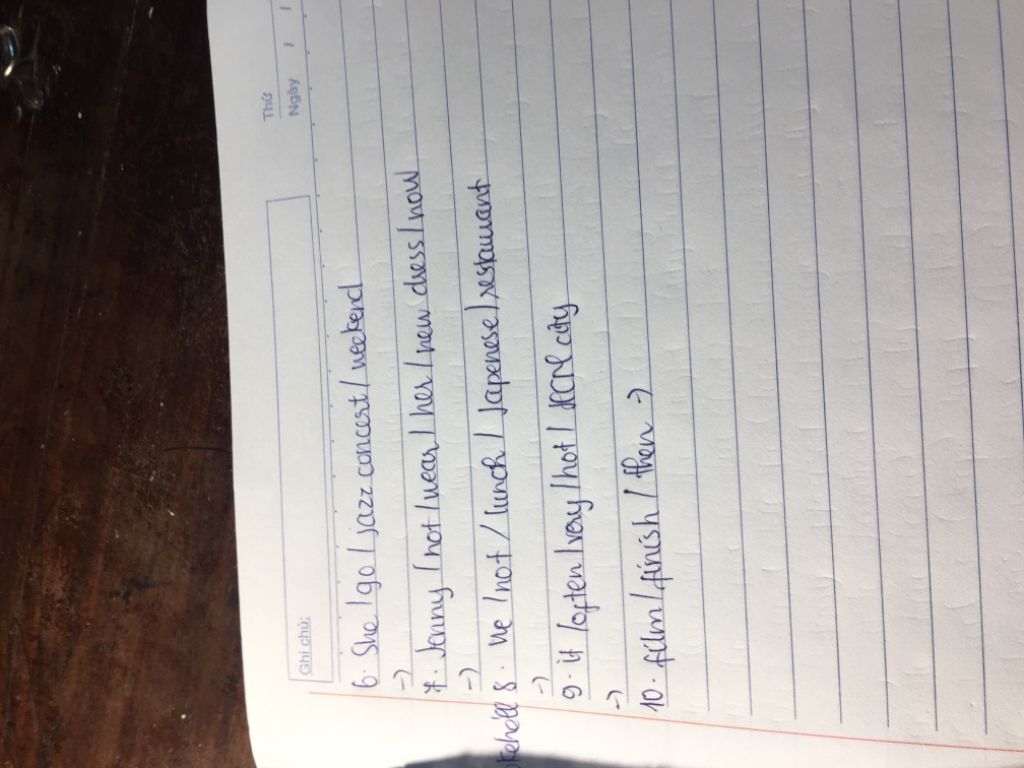 Thứ
Ngày / /
Ghi chú:
6. She / go / jazz concert / weekend
->
7. Jenny / not / wear / her / new dress / now
->
8. We / not / lunch / Japenese / restaurant
->
9. it / often / very / hot / HCM city
->
10. film / finish / then ->